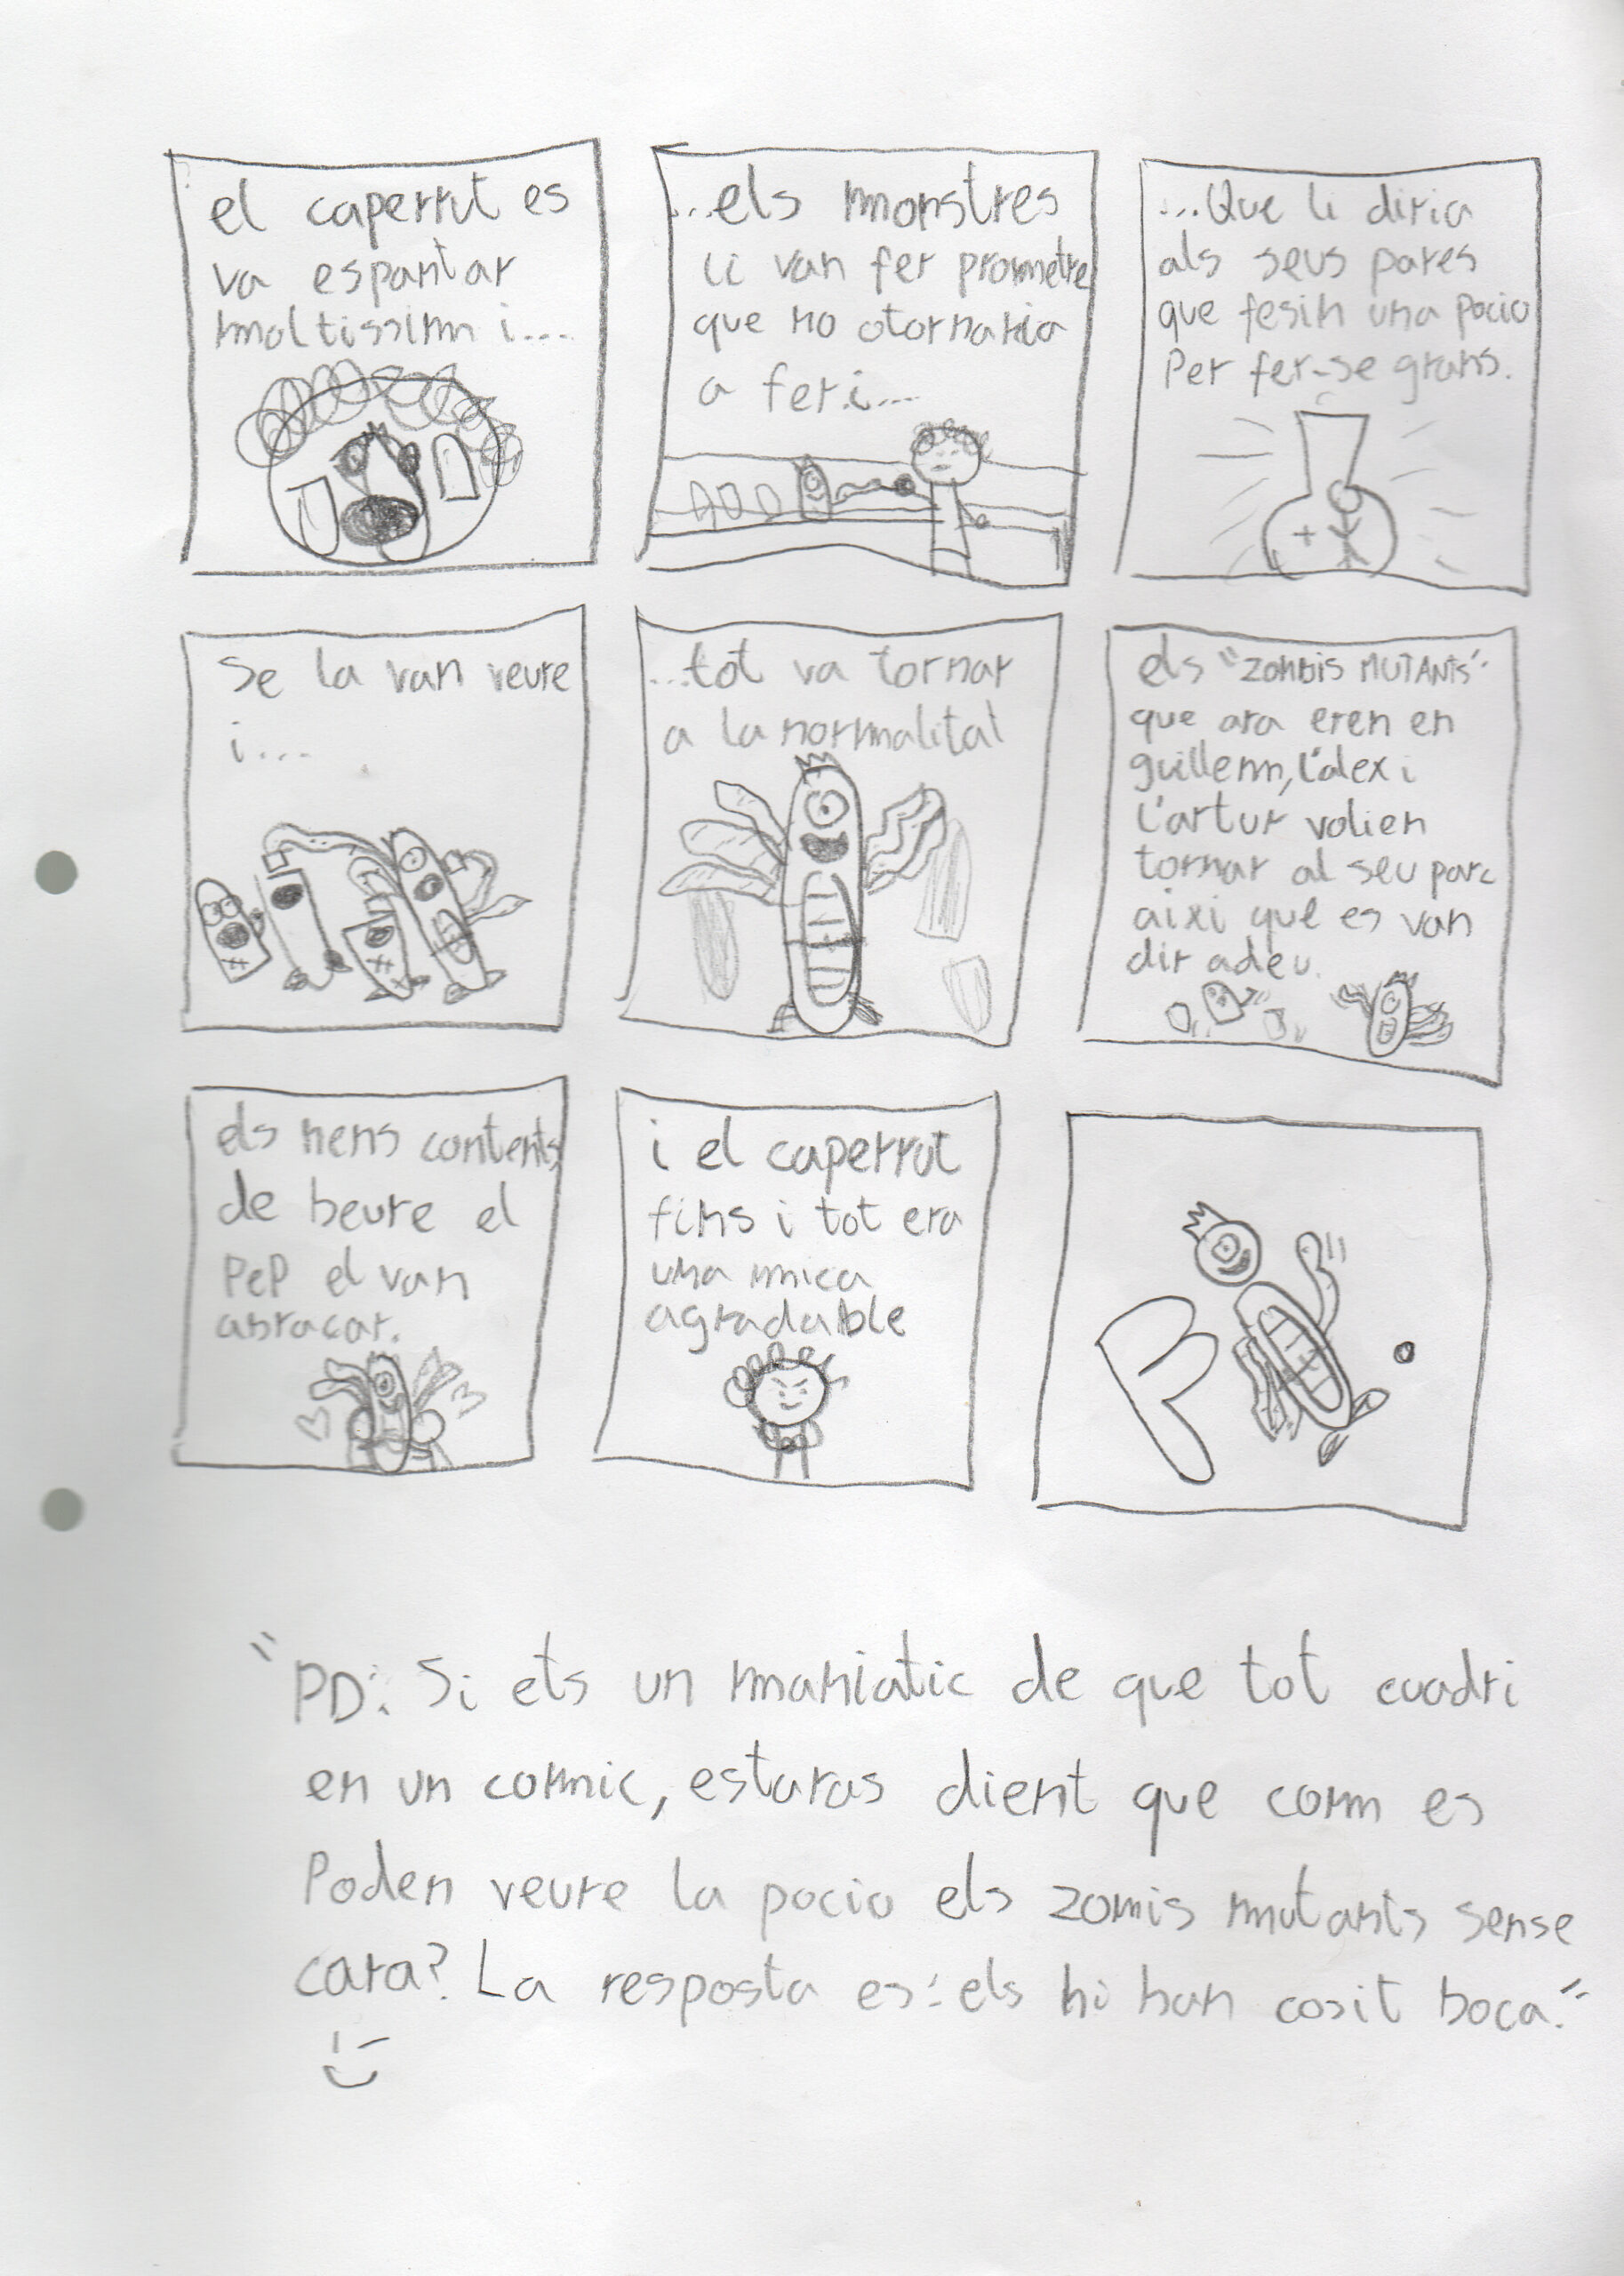 el caperrut es
va espantar
moltissim i....
...els monstres
li van fer prometre
que no otornaria
a fer.i....
...Que li diria
als seus pares
que fesin una pocio
Per fer-se grans.
Se la van veure
i...
...tot va tornar
a la normalitat
els "ZOMBIS MUTANTS"
que ara eren en
guillem, l'alex i
l'artur volien
tornar al seu parc
aixi que es van
dir adeu.
els nens contents
de beure el
PeP el van
abracar.
i el caperrut
fins i tot era
una mica
agradable
FI.
"PD: Si ets un maniatic de que tot cuadri
en un comic, estaras dient que com es
Poden veure la pocio els zomis mutants sense
cara? La resposta es: els hi han cosit boca."